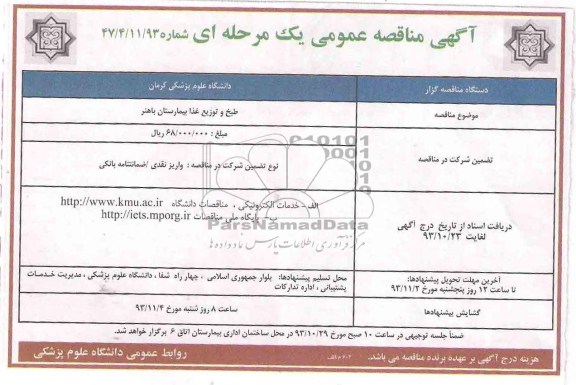 آگهی مناقصه عمومی یک مرحله ای شماره ۴۷/۴/۱۱/۹۳
دستگاه مناقصه گزار
دانشگاه علوم پزشکی کرمان
موضوع مناقصه
طبخ و توزیع غذا بیمارستان باهنر
تضمین شرکت در مناقصه
مبلغ : ۶۸/۰۰۰/۰۰۰ ریال
نوع تضمین شرکت در مناقصه : واریز نقدی /ضمانتنامه بانکی
دریافت اسناد از تاریخ درج آگهی
لغایت ۹۳/۱۰/۲۳
الف - خدمات الکترونیکی ، مناقصات دانشگاه http://www.kmu.ac.ir
ب- پایگاه ملی مناقصات http://iets.mporg.ir
ParsNamadData
مرکز فرآوری اطلاعات پارس نماد داده ها
آخرین مهلت تحویل پیشنهادها:
تا ساعت ۱۲ روز پنجشنبه مورخ ۹۳/۱۱/۲
محل تسلیم پیشنهادها: بلوار جمهوری اسلامی ، چهار راه شفا ، دانشگاه علوم پزشکی ، مدیریت خدمات
پشتیبانی ، اداره تدارکات
گشایش پیشنهادها
ساعت ۸ روز شنبه مورخ ۹۳/۱۱/۴
ضمناً جلسه توجیهی در ساعت ۱۰ صبح مورخ ۹۳/۱۰/۲۹ در محل ساختمان اداری بیمارستان اتاق ۶ برگزار خواهد شد.
هزینه درج آگهی بر عهده برنده مناقصه می باشد.
روابط عمومی دانشگاه علوم پزشکی